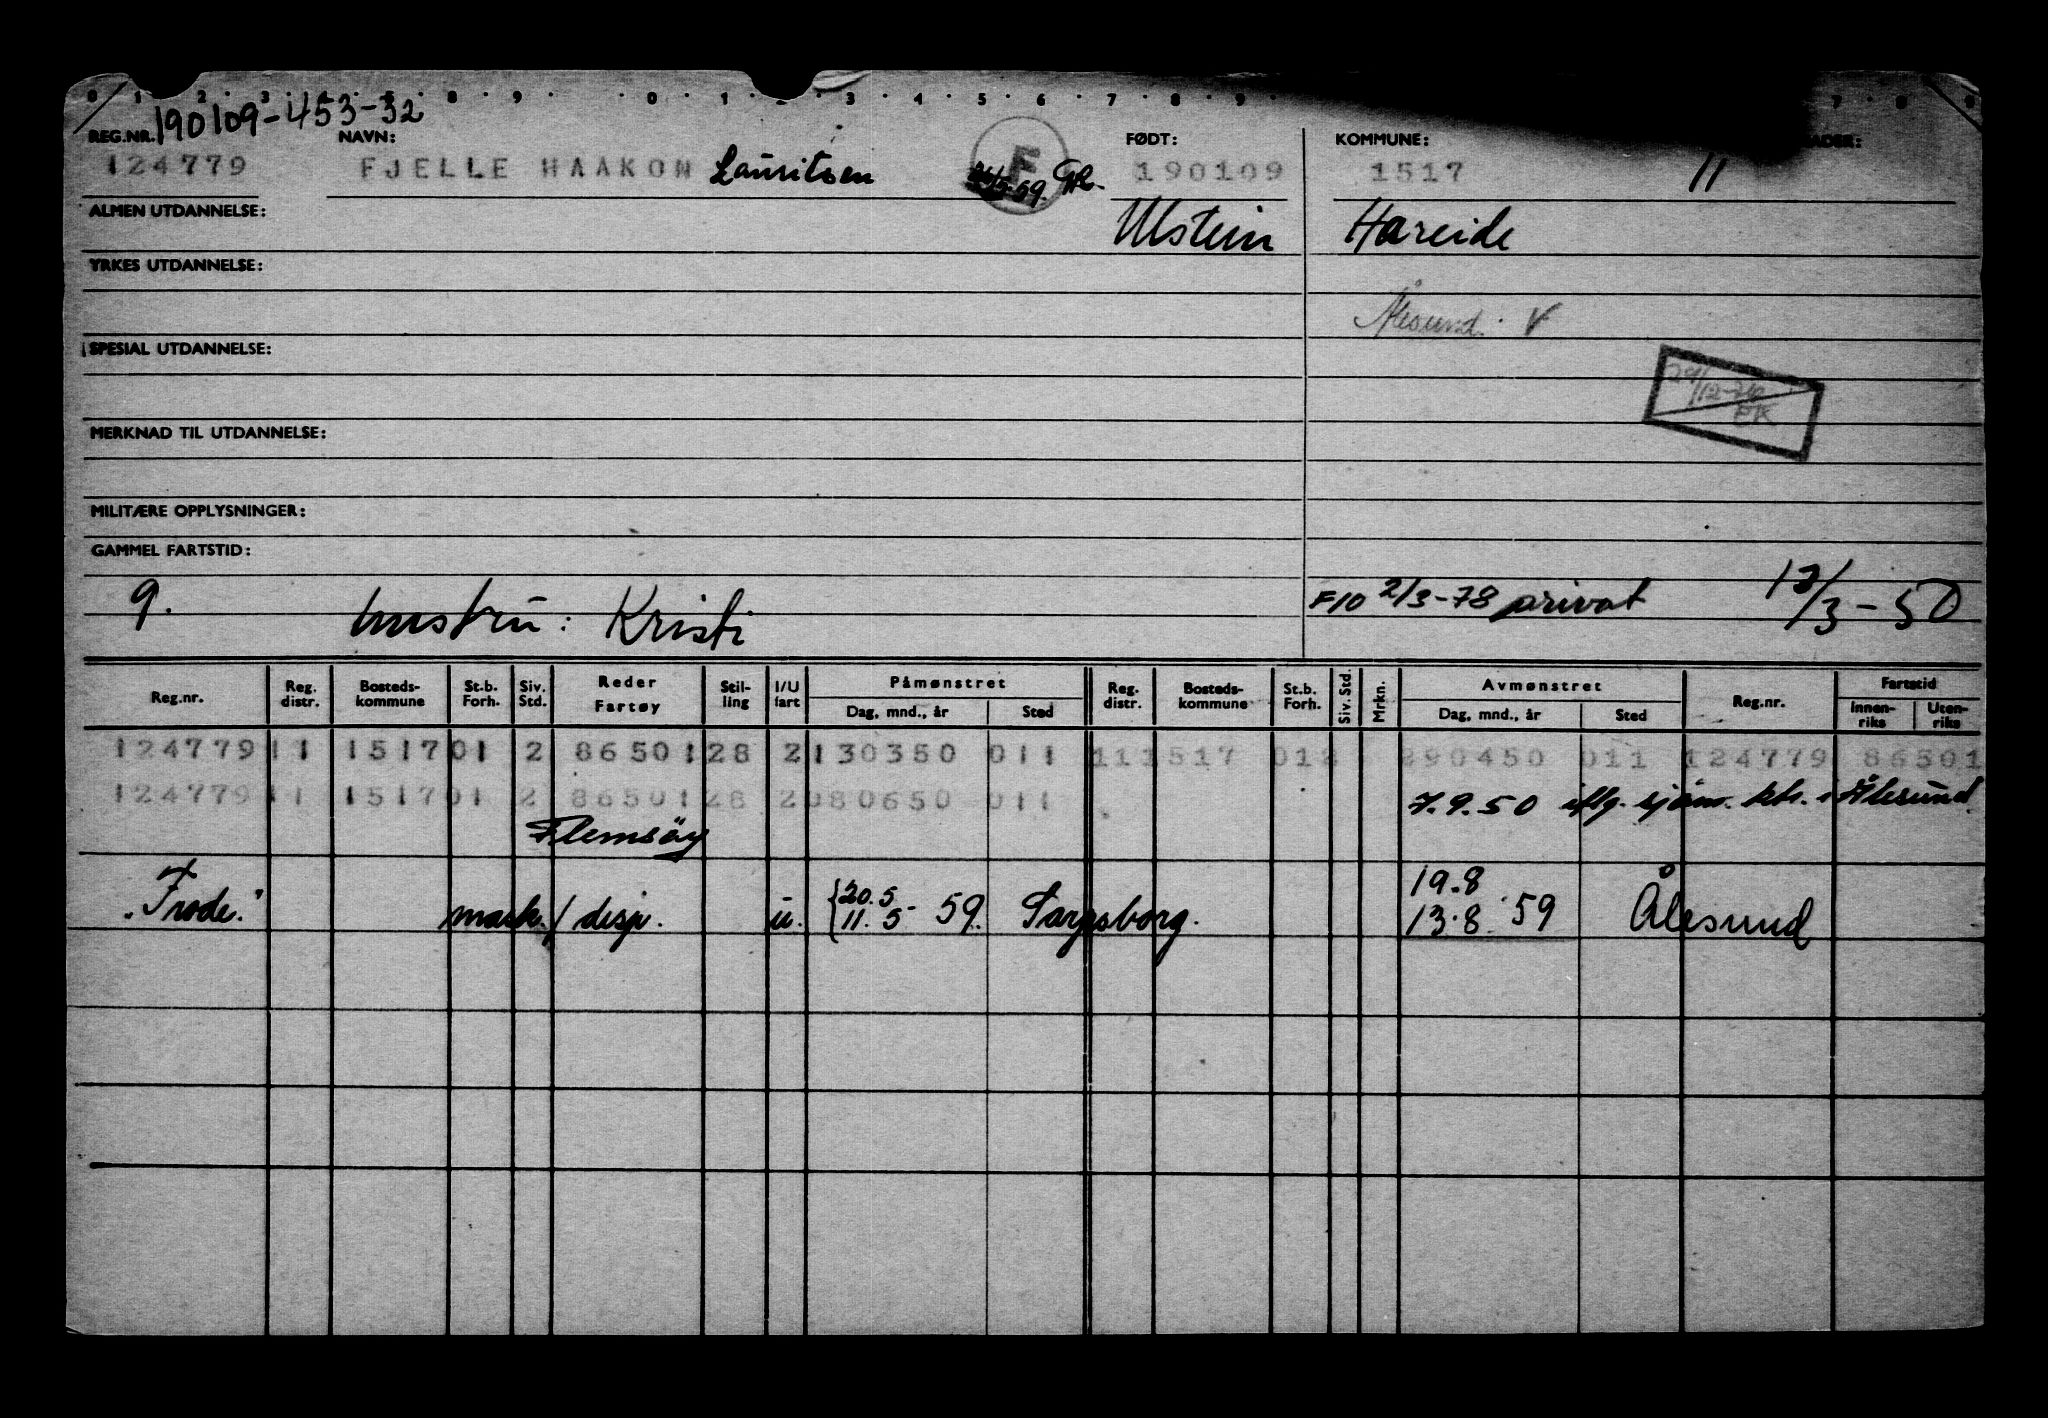 0 1 2 3 4 5 8 9 0 1 2 3 4 5 6 7 8 9 7 8 9
190109-453-32
REG.NR. NAVN: FØDT: KOMMUNE:
124779 FJELLE HAAKON Lauritsen F 59. 190109 1517 11
ALMEN UTDANNELSE: Ulstein Hareide
YRKES UTDANNELSE:
Ålesund. V
SPESIAL UTDANNELSE:
EK
MERKNAD TIL UTDANNELSE:
MILITÆRE OPPLYSNINGER:
GAMMEL FARTSTID:
9. hustru: Kristi F10 2/3-78 privat 13/3-50
Reg.nr. Reg. distr. Bosteds-kommune St.b. Forh. Siv. Std. Reder Fartøy Stil-ling I/U fart Påmønstret Dag, mnd., år Sted Reg. distr. Bosteds-kommune St.b. Forh. Siv. Std. Mrkn. Avmønstret Dag, mnd., år Sted Reg.nr. Fartstid Innen-riks Uten-riks
124779 11 1517 01 2 86501 28 2 130350 011 11 1517 012 290450 011 124779 86501
124779 11 1517 01 2 86501 28 2 080650 011 7.9.50 iflg. sjøm. ktr. i Ålesund
Flemsöy
20.5 19.8
"Frode." mask./disp. u. 11.5-59. Sarpsborg. 13.8.59 Ålesund